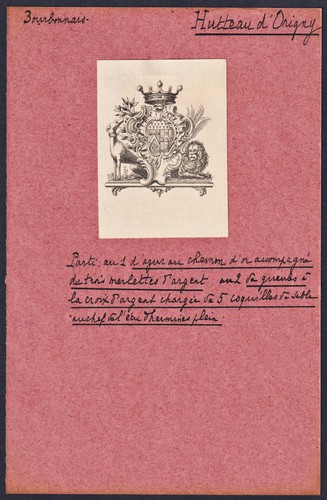 Bourbonnais.
Hutteau d'Origny
Parti au 1 d'azur au chevron d'or accompagné
de trois merlettes d'argent au 2 de gueules à
la croix d'argent chargée de 5 coquilles de sable
au chef de l' d'hermines plein